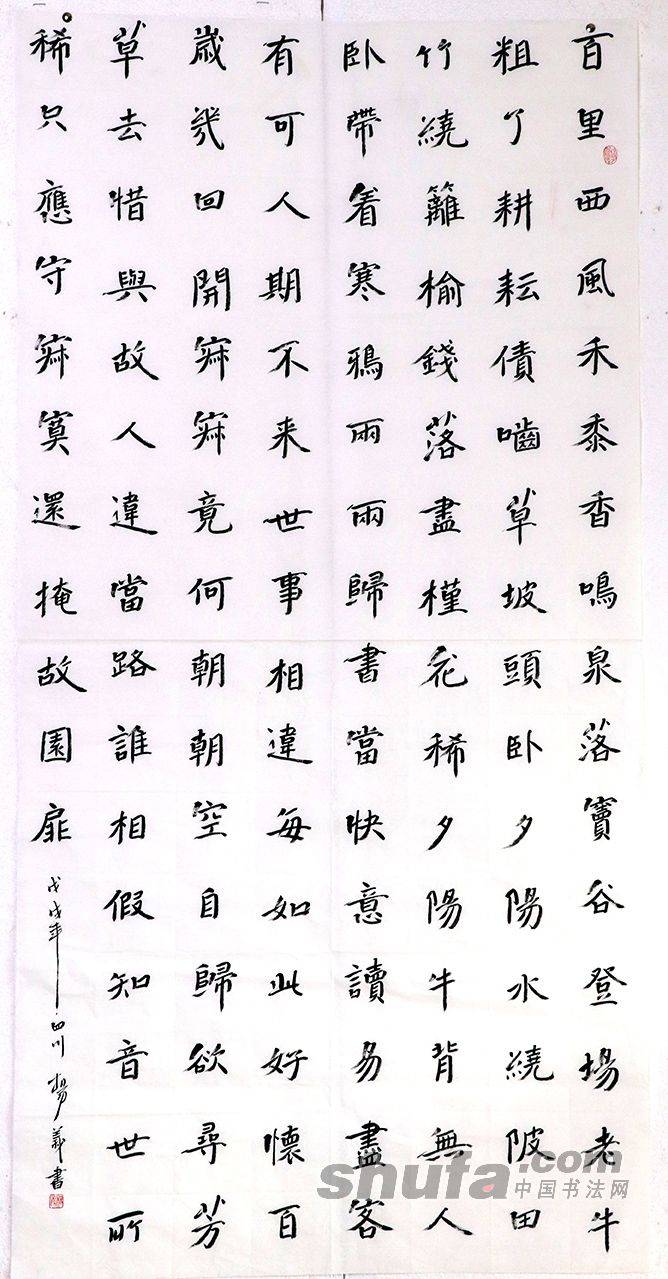 百里西風禾黍香鳴泉落竇谷登場老牛
粗了耕耘債嚙草坡頭卧夕陽水繞陂田
竹繞籬榆錢落盡槿花稀夕陽牛背無人
卧帶着寒鴉兩兩歸書當快意讀易盡客
有可人期不来世事相違每如此好懷百
歲幾回開寂寂竟何朝朝空自歸欲尋芳
草去惜與故人違噹路誰相假知音世所
稀只應守寂寞還掩故園扉
戊戌年四川楊義書
shufa.com
中国书法网